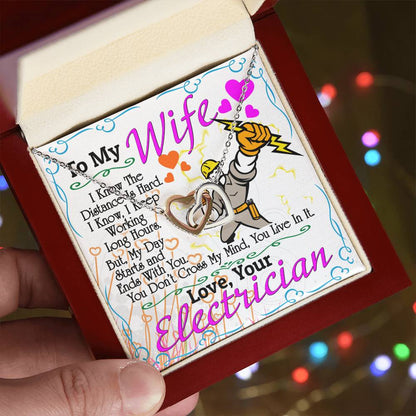 To My Wife
I Know The
Distance Is Hard.
I Know, I Keep
Working
Long Hours.
But, My Day
Starts and
Ends With You.
You Don't Cross My Mind, You Live In It.
Love, Your
Electrician